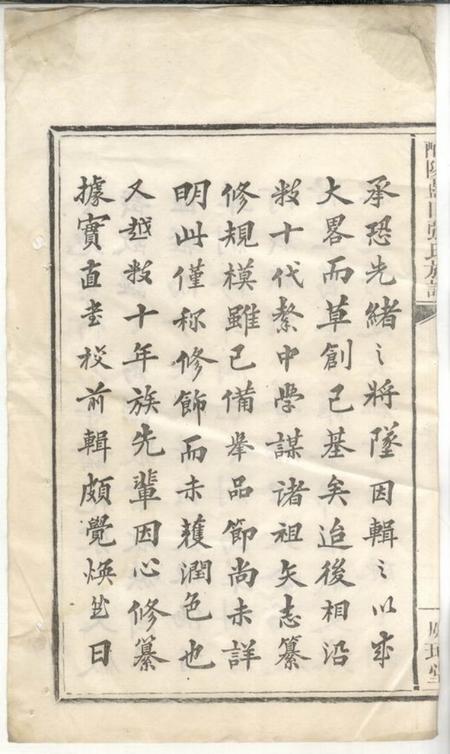 承恐先緒之將墜因輯之以成
大畧而草創已基矣迨後相沿
数十代繋中學謀諸祖矢志纂
修規模雖已備舉品節尚未詳
明此僅称修飾而未獲潤色也
又越数十年族先輩因心修纂
據實直书校前輯頗覺煥然曰
張氏族譜